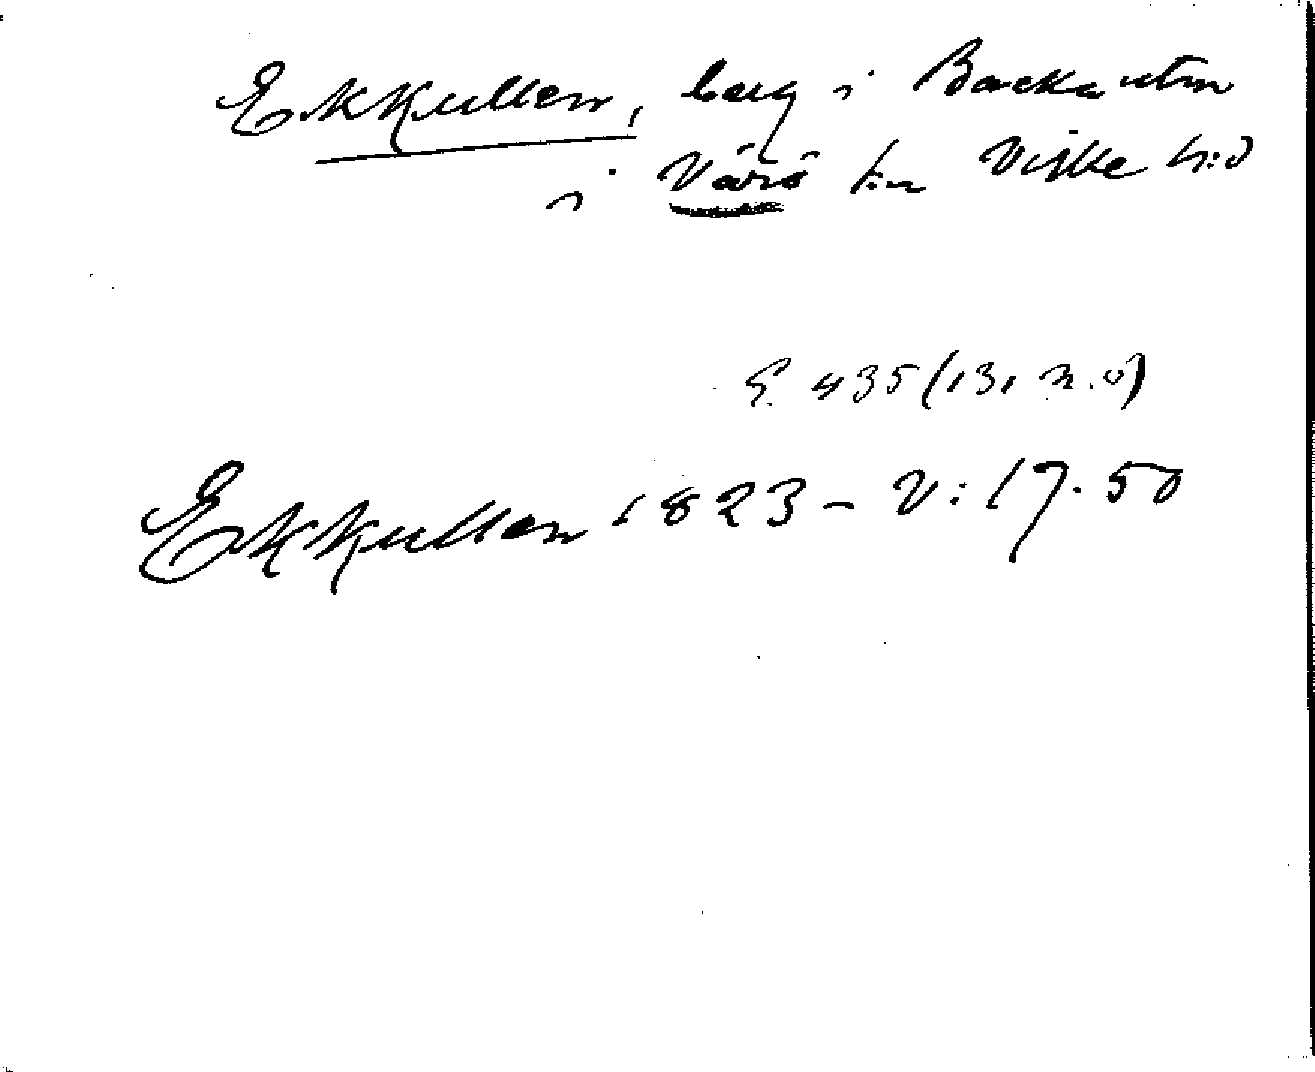 Ekkullen, berg i Backa utm
i Värö sn Viske h:d
S. 435 (131 n.o)
Ekkullen 1823 - V: 17.50